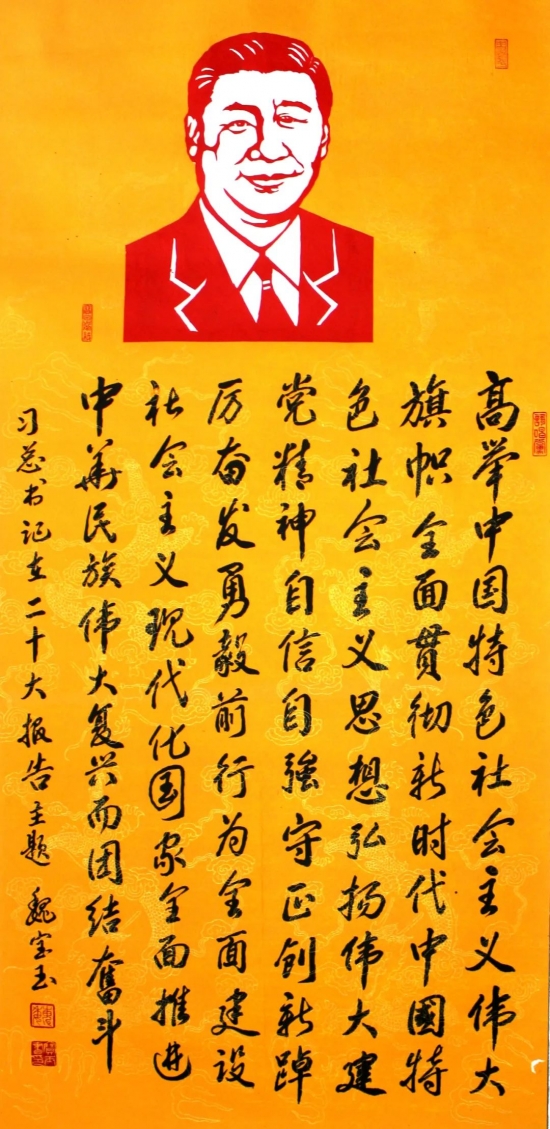 高举中国特色社会主义伟大
旗帜全面贯彻新时代中國特
色社会主义思想弘扬伟大建
党精神自信自強守正创新踔
厉奋发勇毅前行为全面建设
社会主义现代化国家全面推进
中華民族伟大复兴而团结奮斗
习总书记在二十大报告主题 魏宝玉